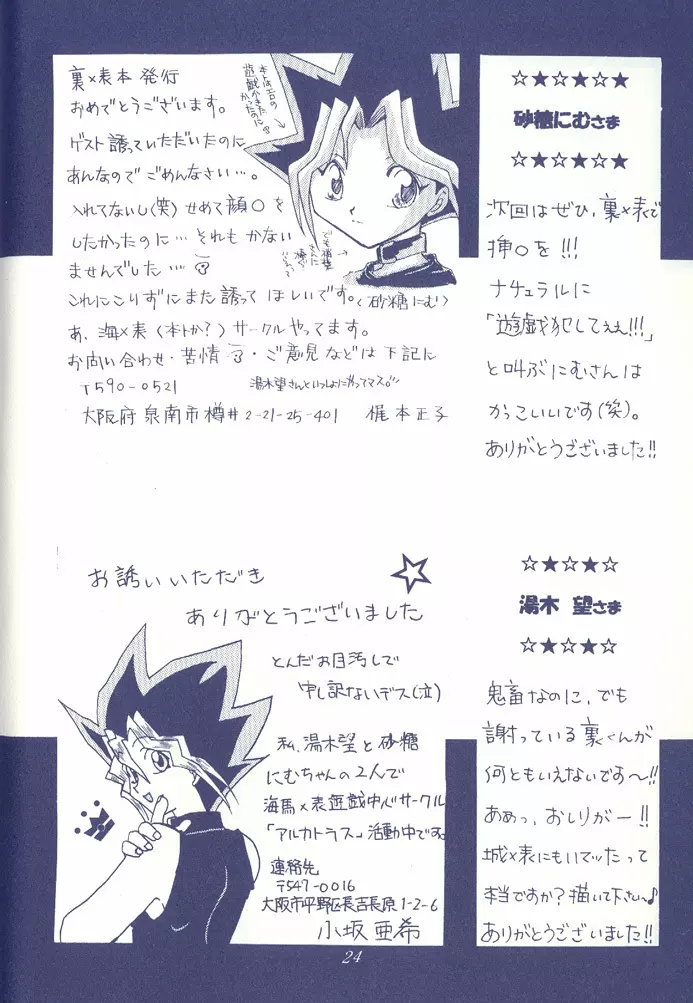 裏×表本 発行
おめでとうございます。
ゲスト誘っていただいたのに
あんなのでごめんなさい…。
入れてないし(笑)せめて顔〇を
したかったのに… それもかない
ませんでした…
これにこりずにまた誘ってほしいです。(砂糖にむ)
あ、海×表(本トか?)サークルやってます。
お問い合わせ・苦情・ご意見などは下記に
〒590-0521
湯木望さんといっしょにやってマス。
大阪府泉南市樽井2-21-25-401 梶本正子
本トはエロの
遊戯がかきた
かったのに
☆★☆★☆★
砂糖にむさま
☆★☆★☆★
次回はぜひ、裏×表で
挿〇を!!!
ナチュラルに
「遊戯犯してぇぇ!!!」
と叫ぶにむさんは
かっこいいです(笑)。
ありがとうございました!!
お誘いいただき
ありがとうございました
とんだお目汚しで
申し訳ないデス(泣)
私、湯木望と砂糖
にむちゃんの2人で
海馬×表遊戯中心サークル
「アルカトラス」活動中です。
連絡先
〒547-0016
大阪市平野区長吉長原1-2-6
小坂亜希
☆★☆★☆
湯木 望さま
☆★☆★☆
鬼畜なのに、でも
謝っている裏くんが
何ともいえないです〜!!
あぁっ、おしりがー!!
城×表にもいてッたって
本当ですか?描いて下さい〜♪
ありがとうございました!!
24